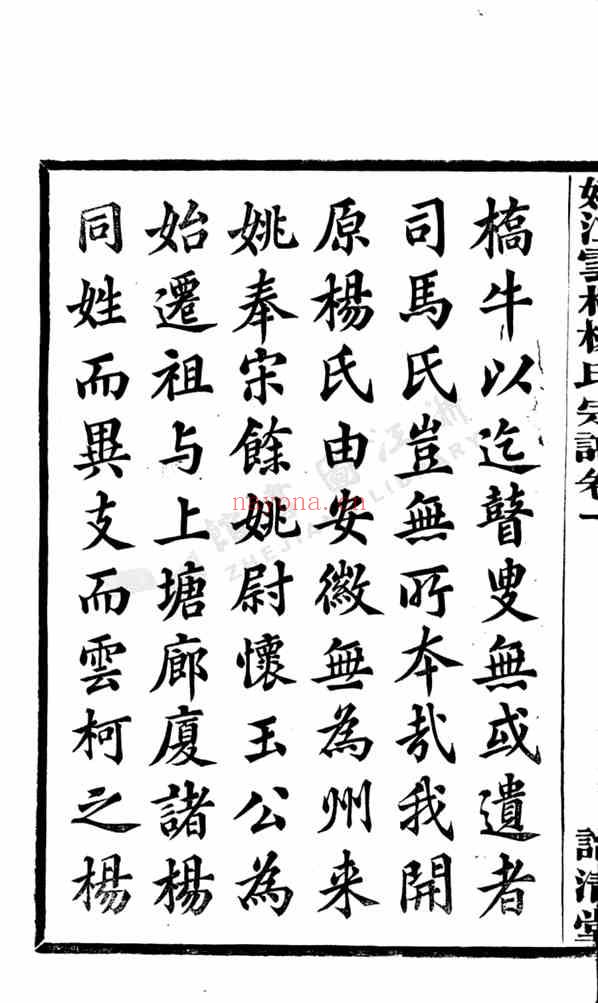 姚江雲柯楊氏宗譜卷一
譜清堂
橋牛以迄瞽叟無或遺者
司馬氏豈無所本哉我開
原楊氏由安徽無為州来
姚奉宋餘姚尉懷玉公為
始遷祖与上塘廊廈諸楊
同姓而異支而雲柯之楊
浙江圖書館
ZHEJIANG LIBRARY
nayona.cn